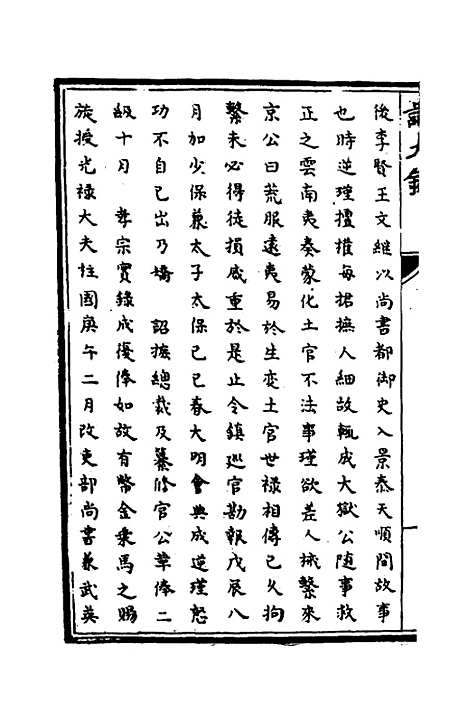 後李賢王文繼以尚書都御史入景泰天順間故事
也時逆瑾擅權每捃摭人細故輒成大獄公随事救
正之雲南夷奏蒙化土官不法事瑾欲差人械繫來
京公曰荒服遠夷易於生变土官世禄相傳已久拘
繫未必得徒損威重於是止令鎮巡官勘報戊辰八
月加少保蒹太子太保己巳春大明會典成逆瑾怒
功不自己出乃矯 詔摭總裁及纂修官公革俸二
級十月 孝宗實録成復俸如故有幣金乗馬之赐
旋授光禄大夫柱國庚午二月改吏部尚書蒹武英